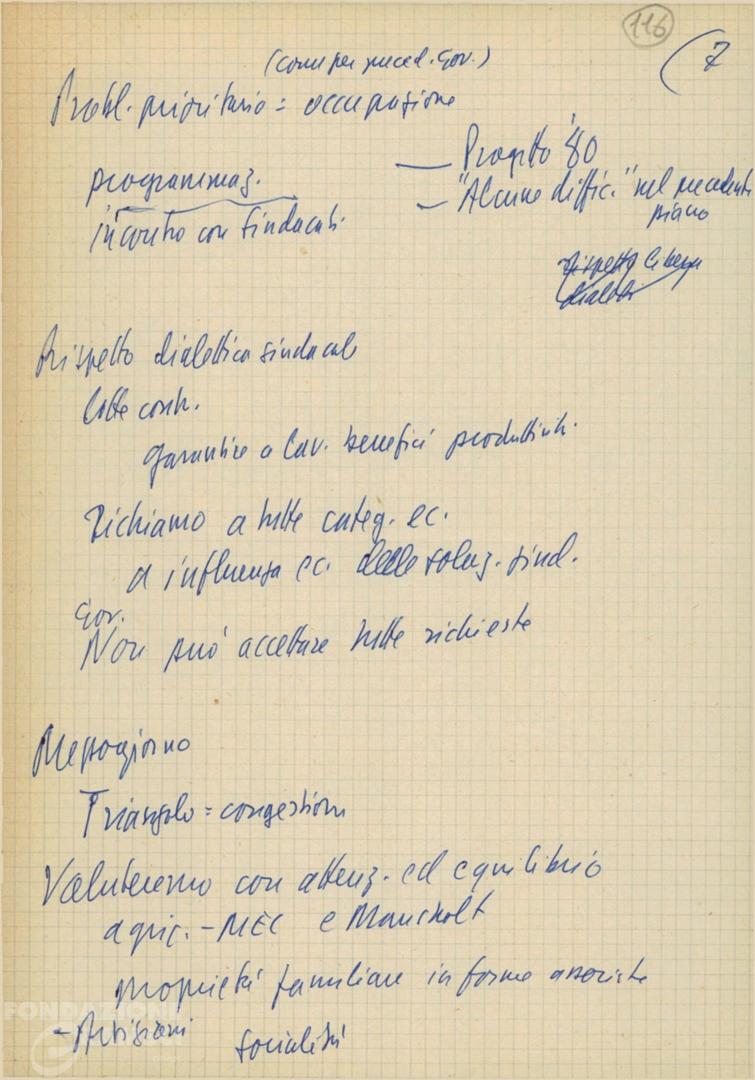 116
7
(come per preced. Gov.)
Probl. prioritario = occupazione
— Progetto '80
programmaz.
— "Alcune diffic." nel precedente
piano
incontro con Sindacati
rispetto
dialett
Rispetto dialettica sindacale
lotte contr.
garantire a lav. benefici produttivit.
Richiamo a tutte categ. ec.
a influenza ec. delle soluz. sind.
Gov.
Non può accettare tutte richieste
Mezzogiorno
Triangolo = congestion
Valuteremo con attenz. ed equilibrio
agric. - MEC e Mansholt
proprietà familiare in forme associate
- Artigiani
socialità
FONDAZIONE